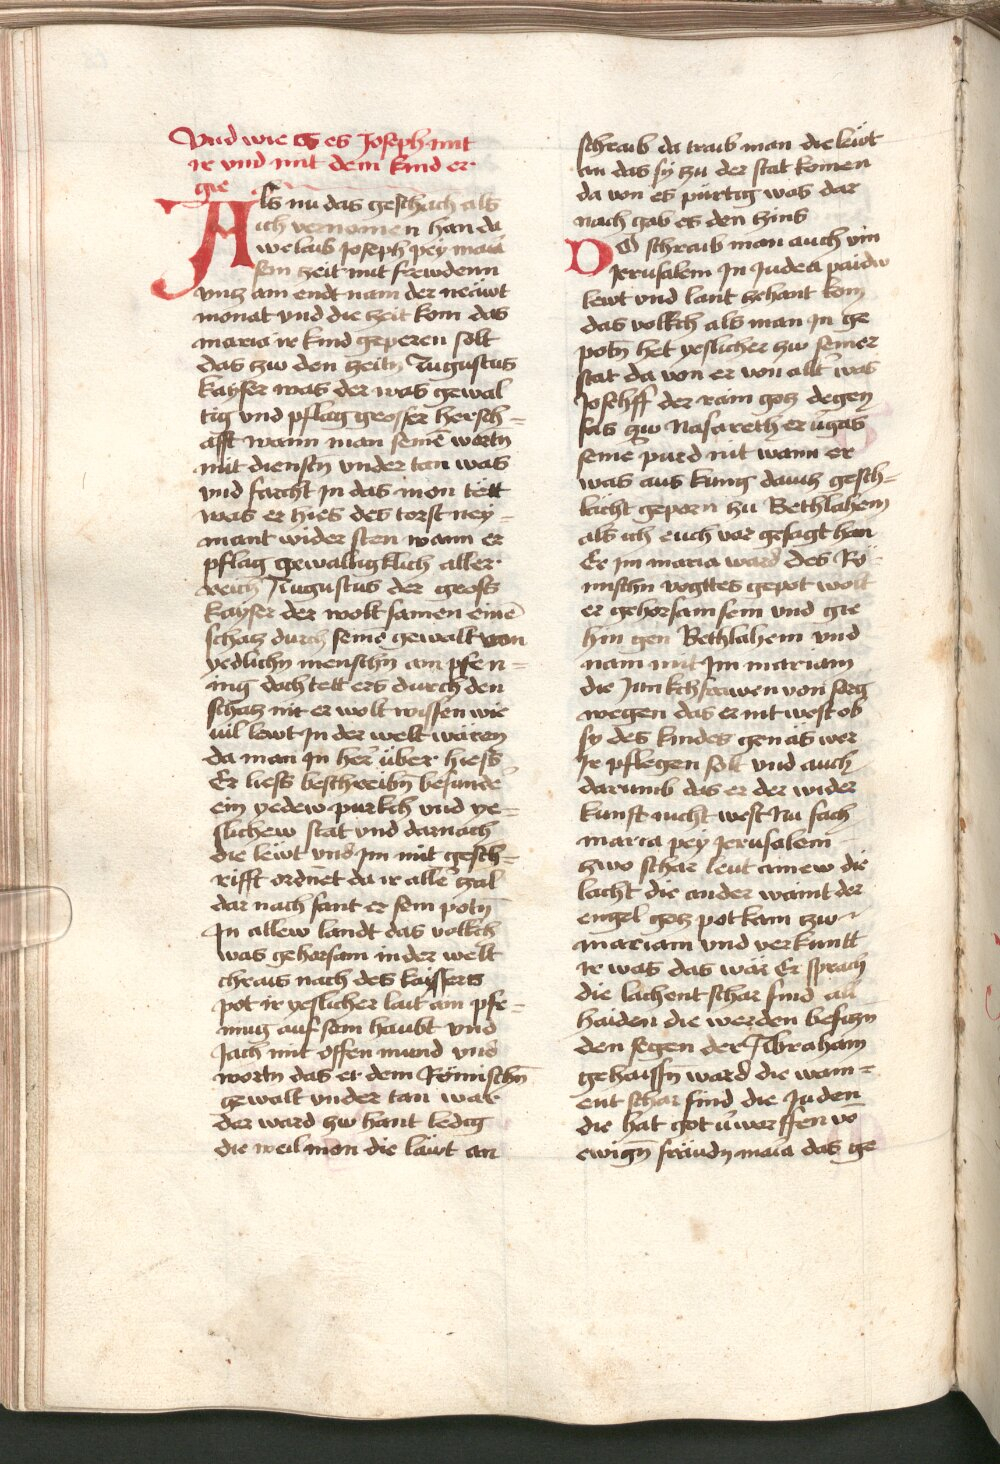 Vnd wie es Joseph mit
ir vnd mit dem kind er
gie
Als nu das geschach als
ich vernomen han da
welaib Joseph pey maria
sein zeit mit frewdenn
vntz am endt nam der newt
monat vnd die zeit kom das
maria ir kind geperen solt
das zw den zeitn Augustus
kayser was der was gewal
tig vnd pflag grosser hersch=
afft wann man seinē wortn
mit dienstn vnder tan was
vnd farcht in das mon tett
was er hies des torst ney=
mant wider sten wann er
pflag gewaltigklich aller
reich Augustus der gross
kayser der wolt samen einē
schatz durch seinē gewalt von
yedlichn menschn am pfen=
ing doch tett ers durch den
schatz nit er wolt wissen wie
uil lewt in der welt wären
da man in her über hiess
Er liess beschreibn besunder
ein yedew purkch vnd ye=
slichew stat vnd darnach
die lewt vnd im mit gesch=
rifft ordnet da ir aller zal
dar nach sant er sein potn
in allew landt das volkch
was gehorsam in der welt
chraiss nach des kayssers
pot ir yeslicher lait am pfe=
ning auf sein haubt vnd
Jach mit offen mund vnd
wortn das er dem Römischn
gewalt vnder tan war
der ward zw hant ledig
die weil mon die läwt an
schraib da traib man die lewt
an das sy zu der stat komen
da von es pürtig was dar
nach gab es den zins
Do schraib man auch vm
Jerusalem in Judea paidw
lewt vnd lant zehant kom
das volkch als man in ge
potn het yeslicher zw seiner
stat da von er von allt was
Joseff der rain gotz degen
sas zw Nasareth er vgas
seinē purd nit wann er
was aus kung dauitz gesch=
lächt geporn zu Bethlahem
als ich euch vor gesagt han
Er im maria ward des Rö
mischn vogttes gepot wolt
er gehorsam sein vnd gie
hin gen Bethlahem vnd
nam mit im mariam
die Junkchfrawen von sorg
wegen das er nit west ob
sy des kindes genäs wer
ir pflegen solt vnd auch
darumb das er der wider
kunft nicht west Nu sach
maria pey Jerusalem
zwo schar leut ainew die
lacht die ander waint der
engel gotz pot kam zw
mariam vnd verkuntt
ir was das wär Er sprach
die lachent schar sind all
haiden die werden besitzn
den segen der Abraham
gehaissn ward die wain=
ent schar sind die Juden
die hat got v̈warffen vō
ewign fräudn maria das ge